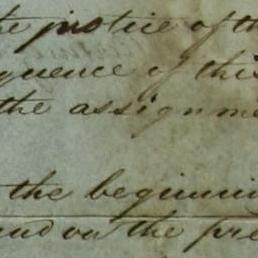 the justice of th
quence of this
the assignme
the beginnin
and on the pre